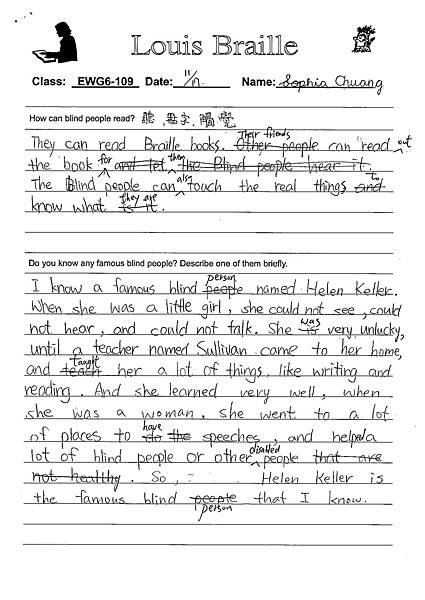 Louis Braille
Class: EWG6-109 Date: 11/17 Name: Sophia Chuang
How can blind people read? 聽、點字、觸覺
They can read Braille books. Other people Their friends can read out
the book for and let them the Blind people hear it.
The Blind people can also touch the real things and to
know what is it they are.
Do you know any famous blind people? Describe one of them briefly.
I know a famous blind people person named Helen Keller.
When she was a little girl, she could not see, could
not hear, and could not talk. She is was very unlucky,
until a teacher named Sullivan came to her home,
and teach taught her a lot of things, like writing and
reading. And she learned very well, when
she was a woman, she went to a lot
of places to do the have speeches, and helped a
lot of blind people or other disabled people that are
not healthy. So, Helen Keller is
the famous blind people person that I know.